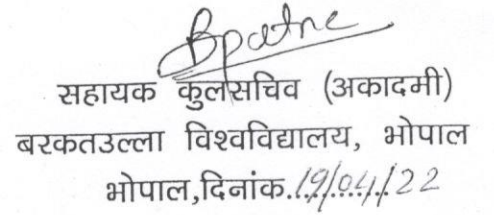 सहायक कुलसचिव (अकादमी)
बरकतउल्ला विश्वविद्यालय, भोपाल
भोपाल,दिनांक.19/04/22